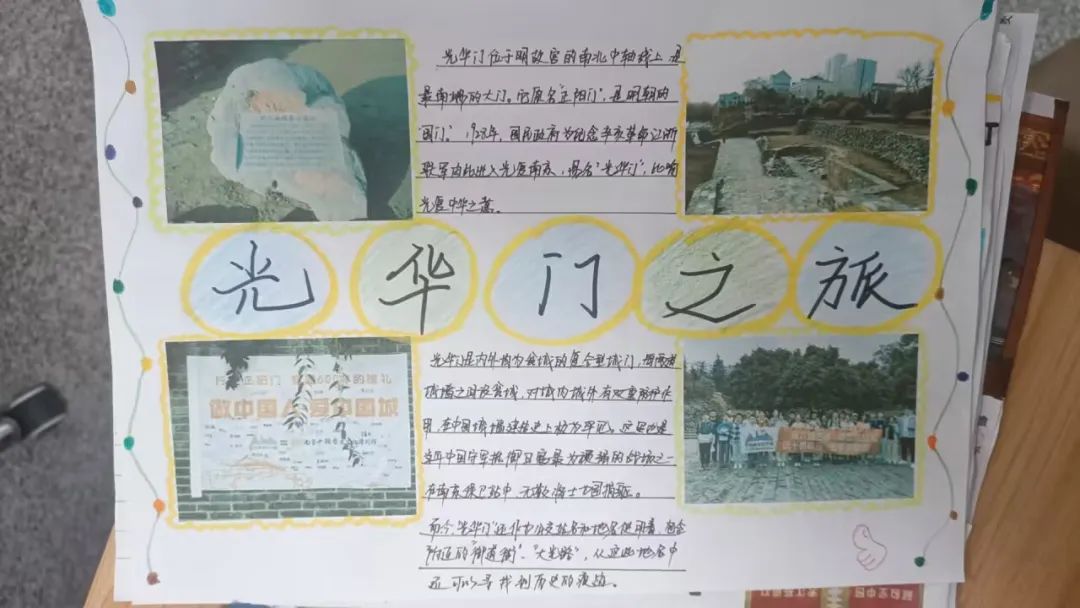 光华门位于明故宫的南北中轴线上,是
最南端的大门。它原名"正阳门",是明朝的
"国门"。1928年,国民政府为纪念辛亥革命江浙
联军由此进入光复南京,易名"光华门",比喻
光复中华之意。
光华门之旅
光华门是内外均为瓮城的复合型城门,
城墙之间及瓮城,对城内城外有双重防护作
用,在中国城墙建造史上极为罕见。这里也是
当年中国守军抵御日寇最为惨烈的战场之一
在南京保卫战中,无数将士为国捐躯。
而今,"光华门"还作为公交站名和地名使用着,包含
附近的"御道街"、"大光路",从这些地名中
还可以寻找到历史的痕迹。
正阳门 600年的城礼
做中国人 爱中国城